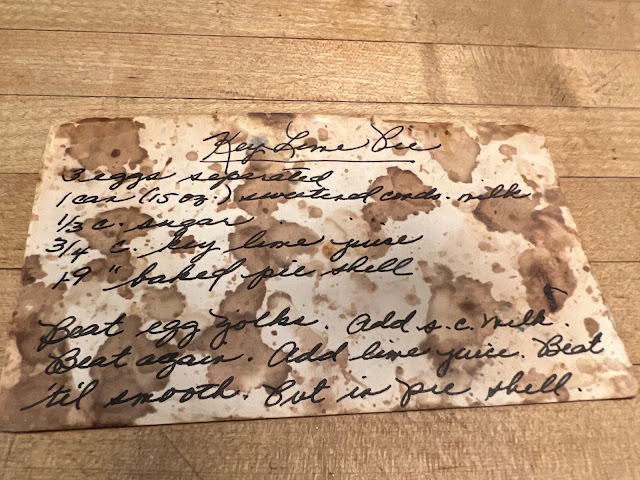 Key Lime Pie
3 eggs separated
1 can (15 oz.) sweetened conds. milk
1/3 c. sugar
3/4 c. key lime juice
1-9" baked pie shell
Beat egg yolks. Add s.c. milk.
Beat again. Add lime juice. Beat
'til smooth. Put in pie shell.